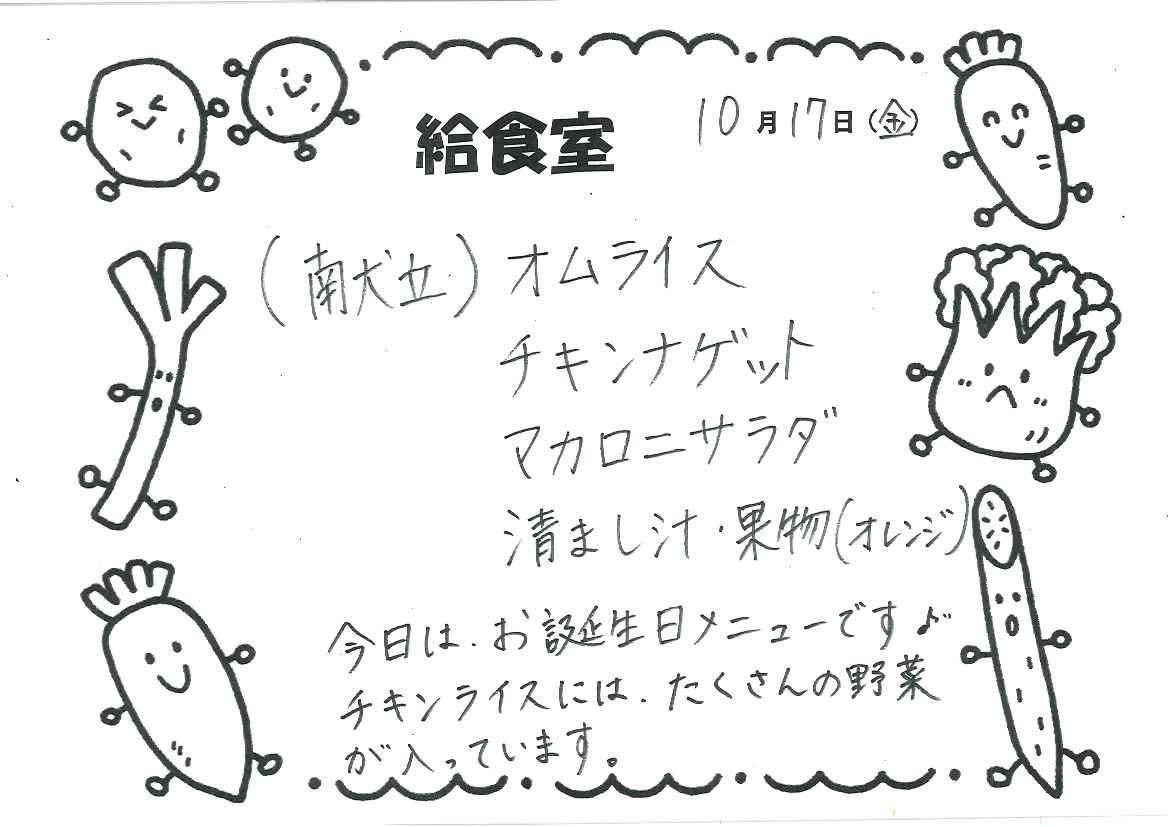 給食室 10月17日(金)
(献立) オムライス
チキンナゲット
マカロニサラダ
清まし汁・果物(オレンジ)
今日は、お誕生日メニューです♪
チキンライスには、たくさんの野菜
が入っています。